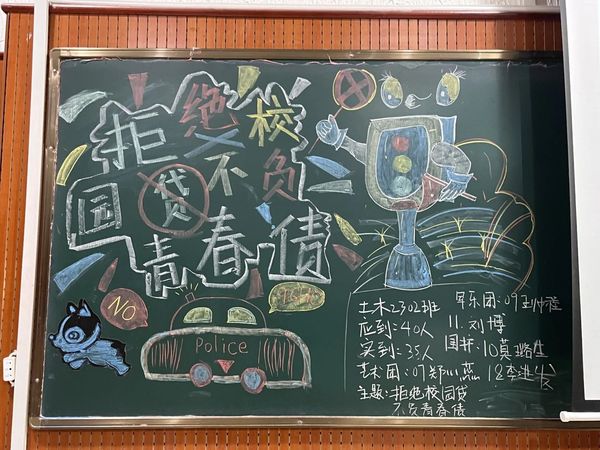 拒绝校
园贷不负
青春债
NO
Police
土木2302班
应到:40人
实到:35人
艺术团:07郑
主题:拒绝校园贷
不负青春债
军乐团:09
11.刘博
国旗:10莫璐生
12李进